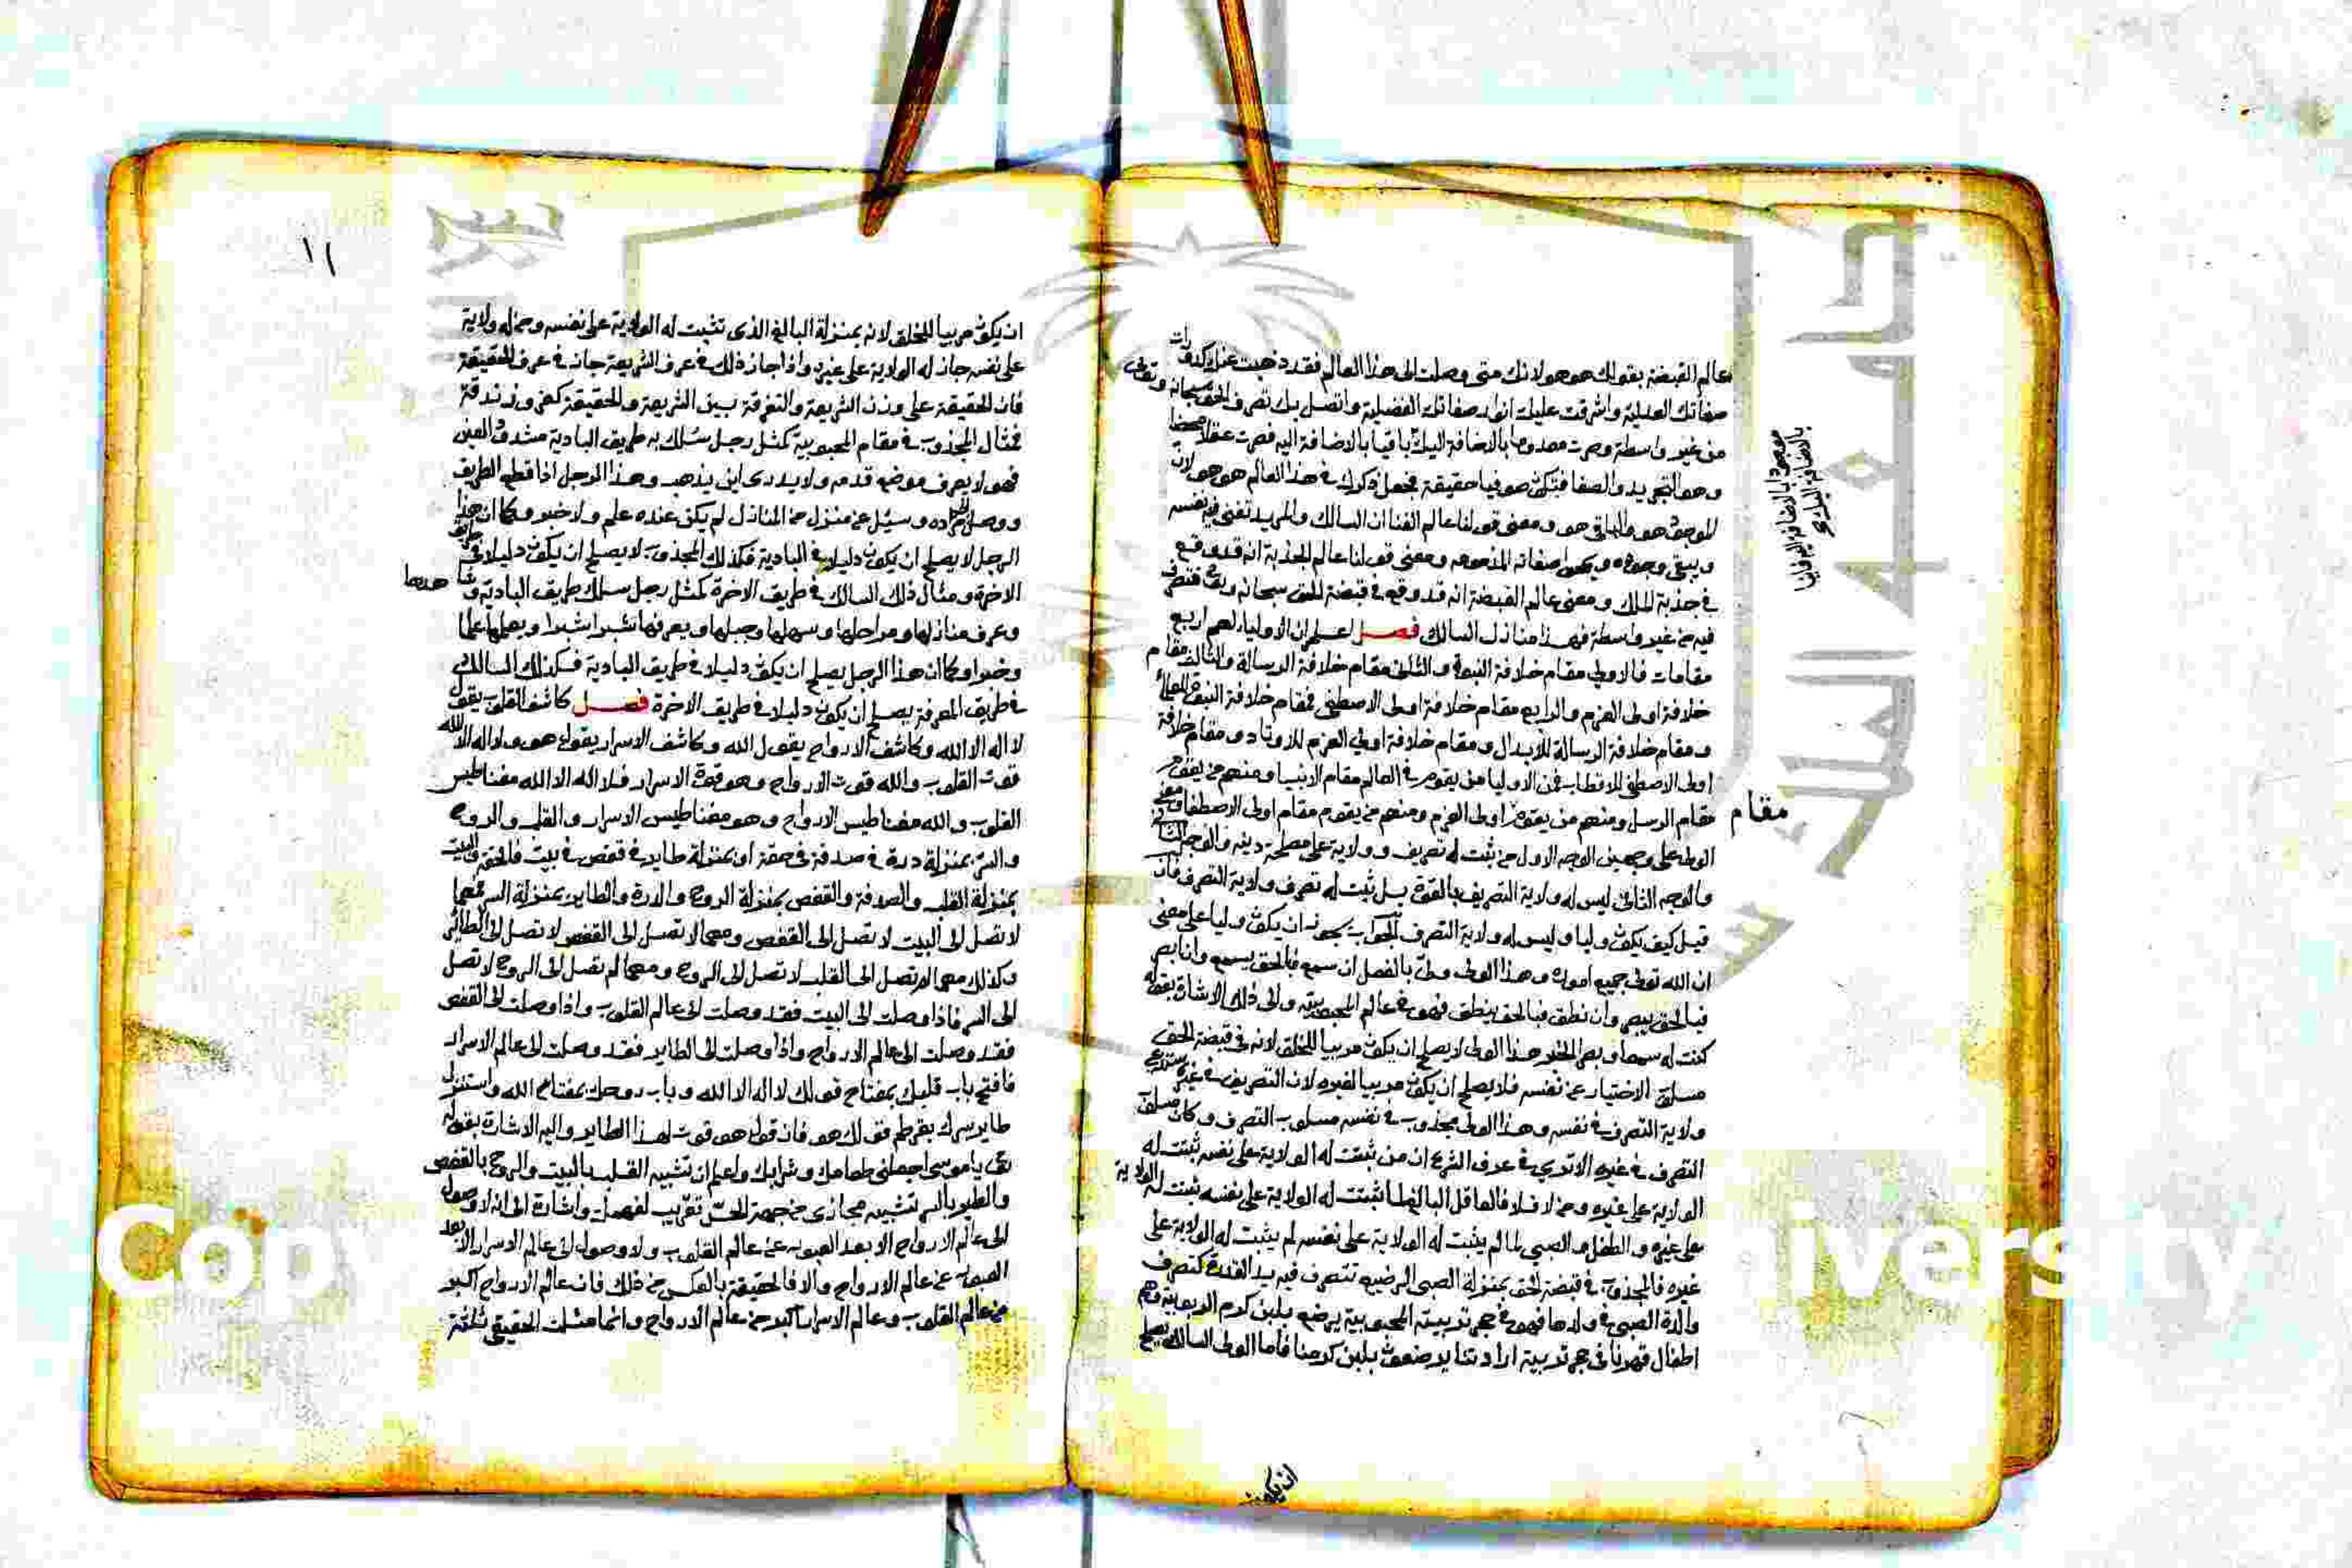 عالم القبضة بقولك هو هو لانك متى وصلت الى هذا العالم فقد ذهبت عنك كدورات
صفاتك العدلية واشرقت عليك انوار صفاتك الفضلية واتصل بك تصرف الحق سبحانه وتعالى
من غير واسطة وصرت معدوما بالاضافة اليك باقيا بالاضافة اليه فصرت عقلا محضا
وهو التجريد والصفا فتكون صوفيا حقيقة فجعل ذكرك في هذا العالم هو هو لان
الموجود هو والباقي هو ومعنى قولنا عالم الفنا ان السالك والمريد تفنى فيه نفسه
ويبقى وجوده صفاته المذمومه ومعنى قولنا عالم الجذبة انه قد وقع
في جذبة الملك ومعنى عالم القبضة انه قد وقع في قبضة الحق سبحانه وتعالى
فيه من غير واسطة فهذا منازل السالك فصل اعلم ان الاولياء لهم اربع
مقامات فالاولى مقام خلافة النبوة والثاني مقام خلافة الرسالة والثالث مقام
خلافة اولى العزم والرابع مقام خلافة اولى الاصطفى فمقام خلافة النبوة للعلماء
ومقام خلافة الرسالة للابدال ومقام خلافة اولى العزم للاوتاد ومقام خلافة
اولى الاصطفى للاقطاب فمن الاوليا من يقوم في العالم مقام الانبيا ومنهم من يقوم
مقام الرسل ومنهم من يقوم اولى العزم ومنهم من يقوم مقام اولى الاصطفا
الولى على وجهين الوجه الاول من ثبت له تصريف وولاية على مصلحة دينه والوجه
والوجه الثاني ليس له ولاية التصريف بالقوة بل ثبت له تصرف ولاية التصرف فان
قيل كيف يكون وليا وليس له ولاية التصرف الجواب يجوز ان يكون وليا على معنى
ان الله تعلى جميع اموره وهذا الولى ولى بالفصل ان سمع فالحق يسمع وان ابصر
فبالحق يبصر وان نطق فبالحق ينطق فهو في عالم المحبوبيته والى ذلك الاشارة بقوله
كنت له سمعا وبصرا الخبر هذا الولى لا يصلح ان يكون مربيا للخلق لانه في قبضة الحق
مسلوب الاختيار عن نفسه فلا يصلح ان يكون مربيا لغيره لان التصريف في غيره
ولاية التصرف في نفسه وهذا الولى مجذوب في نفسه مسلوب التصرف وكان مسلوب
التصرف في غيره الا ترى في عرف الشرع ان من ثبتت له الولاية على نفسه ثبتت له
الولاية على غيره ومن لا فلا فالعاقل البالغ لما ثبتت له الولاية على نفسه ثبتت له الولاية
على غيره والطفل والصبي لما لم يثبت له الولاية على نفسه لم يثبت له الولاية على
غيره فالمجذوب في قبضة الحق بمنزلة الصبى الرضيع تتصرف فيه يد القدرة كتصرف
والدة الصبى في ولدها فهو في حجر تربيته المحبوبية يرضع بلبن كرم الربوبية وهم
اطفال قهرنا في حجر تربية ارادتنا يرضعون بلبن كرمنا فأما الولى السالك يصلح
موجودا بالاضافة اليه فانيا
بالاضافة اليك
مقام
ان يكون
١١
ان يكون مربيا للخلق لانه بمنزلة البالغ الذى تثبت له الولاية على نفسه ومن له ولاية
على نفسه جاز له الولاية على غيره واذا جاز ذلك في عرف الشريعة جاز في عرف الحقيقة
فان الحقيقة على وزن الشريعة والتفرقة بين الشريعة والحقيقة كفر وزندقة
فمثال المجذوب في مقام المحبوبية كمثل رجل سلك به طريق البادية مشدود العين
فهو لا يعرف موضع قدمه ولا يدرى اين يذهب وهذا الرجل اذا قطع الطريق
ووصل مراده وسئل عن منزل من المنازل لم يكن عنده علم ولا خبر وكما ان هذا
الرجل لا يصلح ان يكون دليلا في البادية فكذلك المجذوب لا يصلح ان يكون دليلا في طريق
الاخرة ومثال ذلك السالك في طريق الاخرة كمثل رجل سلك طريق البادية
وعرف منازلها ومراحلها وسهلها وجبلها ويعرفها شبرا شبرا ويعلمها علما
وخبرا وكما ان هذا الرجل يصلح ان يكون دليلا في طريق البادية فكذلك السالك
في طريق المعرفة يصلح ان يكون دليلا في طريق الاخرة فصل كاشف القلوب يقول
لا اله الا الله وكاشف الارواح يقول الله وكاشف الاسرار يقول هو هو ولا اله الا الله
قوت القلوب والله قوت الارواح وهو قوة الاسرار فلا اله الا الله مغناطيس
القلوب والله مغناطيس الارواح وهو مغناطيس الاسرار والقلب والروح
والسر بمنزلة درة في صدفة في حقة او بمنزلة طاير في قفص في بيت فالحقة والبيت
بمنزلة القلب والصدفة والقفص بمنزلة الروح والدرة والطاير بمنزلة السر فمهما
لا تصل الى البيت لا تصل الى القفص ومهما لا تصل الى القفص لا تصل الى الطائر
وكذلك مهما لم تصل الى القلب لا تصل الى الروح ومهما لم تصل الى الروح لا تصل
الى السر فاذا وصلت الى البيت فقد وصلت الى عالم القلوب واذا وصلت الى القفص
فقد وصلت الى عالم الارواح واذا وصلت الى الطاير فقد وصلت الى عالم الاسرار
فافتح باب قلبك بمفتاح قولك لا اله الا الله وباب روحك بمفتاح الله واستنزل
طاير سرك بقرطم قولك هو فان قول هو قوت لهذا الطاير واليه الاشارة بقوله
تعالى ياموسى اجعلني طعامك وشرابك واعلم ان تشبيه القلب بالبيت والروح بالقفص
والطير بالسر تشبيه مجازى من جهة الحس تقريب لفهمك واشارة الى انه لا وصول
الى عالم الارواح الا بعد العبور عن عالم القلوب ولا وصول الى عالم الاسرار الا بعد
العبور عن عالم الارواح والا فالحقيقة بالعكس من ذلك فان عالم الارواح اكبر
من عالم القلوب وعالم الاسرار اكبر من عالم الارواح وانما مثلت الحقيقي